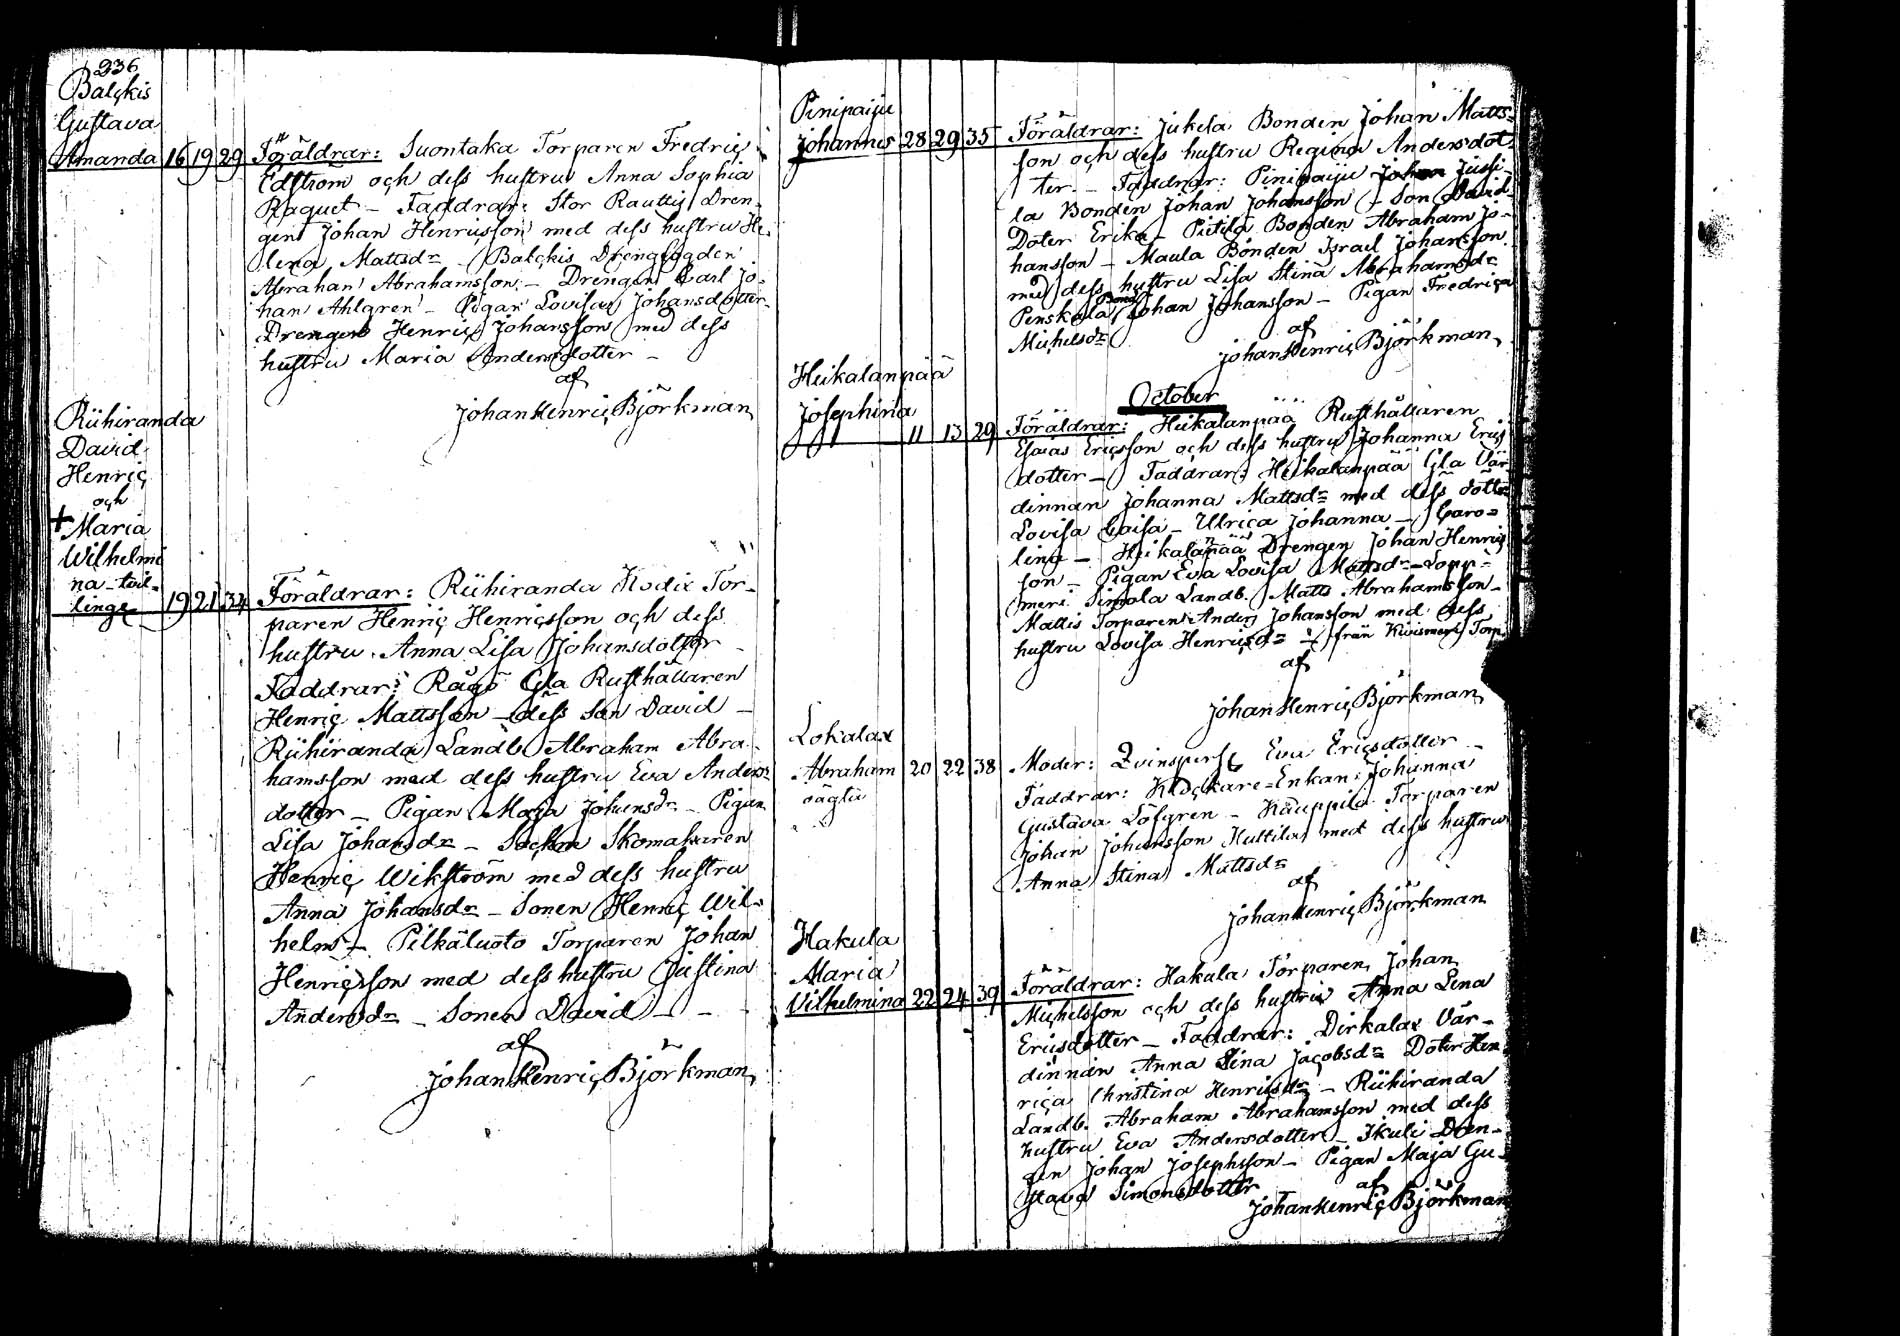 236
Balckis
Gustava
Amanda 16 19 29 Föräldrar: Suontaka Torparen Fredric
Edström och dess hustru Anna Sophia
Raquet – Faddrar: Stor Rauttis Dren-
gen Johan Henricsson med dess hustru He-
lena Mattsdr – Balckis Drengfogden
Abraham Abrahamsson – Drengen Carl Jo-
han Ahlgren – Pigan Lovisa Johansdotter –
Drengen Henric Johansson med dess
hustru Maria Andersdotter –
af
Johan Henric Björkman
Riihiranda
David
Henric
och
+ Maria
Wilhelmi
na – tvil-
linge 19 21 34 Föräldrar: Riihiranda Tor-
paren Henric Henricsson och dess
hustru Anna Lisa Johansdotter –
Faddrar: Rågö Gla Rusthållaren
Henric Mattsson – dess Son David –
Riihiranda Landb. Abraham Abra-
hamsson med dess hustru Eva Anders-
dotter – Pigan Maja Johansdr – Pigan
Lisa Johansdr – Sockne Skomakaren
Henric Wikström med dess hustru
Anna Johansdr – Sonen Henric Wil-
helm – Pilkäluoto Torparen Johan
Henricsson med dess hustru Justina
Andersdr – Sonen David –
af
Johan Henric Björkman
Pinipaiju
Johannes 28 29 35 Föräldrar: Jukela Bonden Johan Matts-
son och dess hustru Regina Andersdot-
ter – Faddrar: Pinipaiju Jussi-
la Bonden Johan Johansson – Son David –
Doter Erika – Pietilä Bonden Abraham Jo-
hansson – Maula Bonden Israel Johansson
med dess hustru Lisa Stina Abrahamsdr
Penskala Bond. Johan Johansson – Pigan Fredrica
Michelsdr
af
Johan Henric Björkman
October
Heikalanpää
Josephina 11 13 29 Föräldrar: Heikalanpää Rusthållaren
Esaias Ericsson och dess hustru Johanna Erics
dotter – Faddrar: Heikalanpää Gla Vär-
dinnan Johanna Mattsdr med dess dötter
Lovisa Caisa – Ulrica Johanna – Caro-
lina – Heikalanpää Drengen Johan Henrics
son – Pigan Eva Lovisa Mattsdr – Lopp-
meri Simola Landb. Matts Abrahamsson –
Mattis Torparen Anders Johansson med dess
hustru Lovisa Henricsdr – från Kivimeri Torp.
af
Johan Henric Björkman
Lokalax
Abraham 20 22 38 Moder: Qvinspers. Eva Ericsdotter –
oägta Faddrar: Klockare-Enkan Johanna
Gustava Löfgren – Kauppila Torparen
Johan Johansson Kuttila med dess hustru
Anna Stina Mattsdr
af
Johan Henric Björkman
Hakula
Maria
Vilhelmina 22 24 39 Föräldrar: Hakula Torparen Johan
Michelsson och dess hustru Anna Lena
Ericsdotter – Faddrar: Dirkalax Vär-
dinnan Anna Stina Jacobsdr Doter Hen-
rica Christina Henricsdr – Riihiranda
Landb. Abraham Abrahamsson med dess
hustru Eva Andersdotter – Ikuli Dren-
gen Johan Josephsson – Pigan Maja Gu-
stava Simonsdotter
af
Johan Henric Björkman